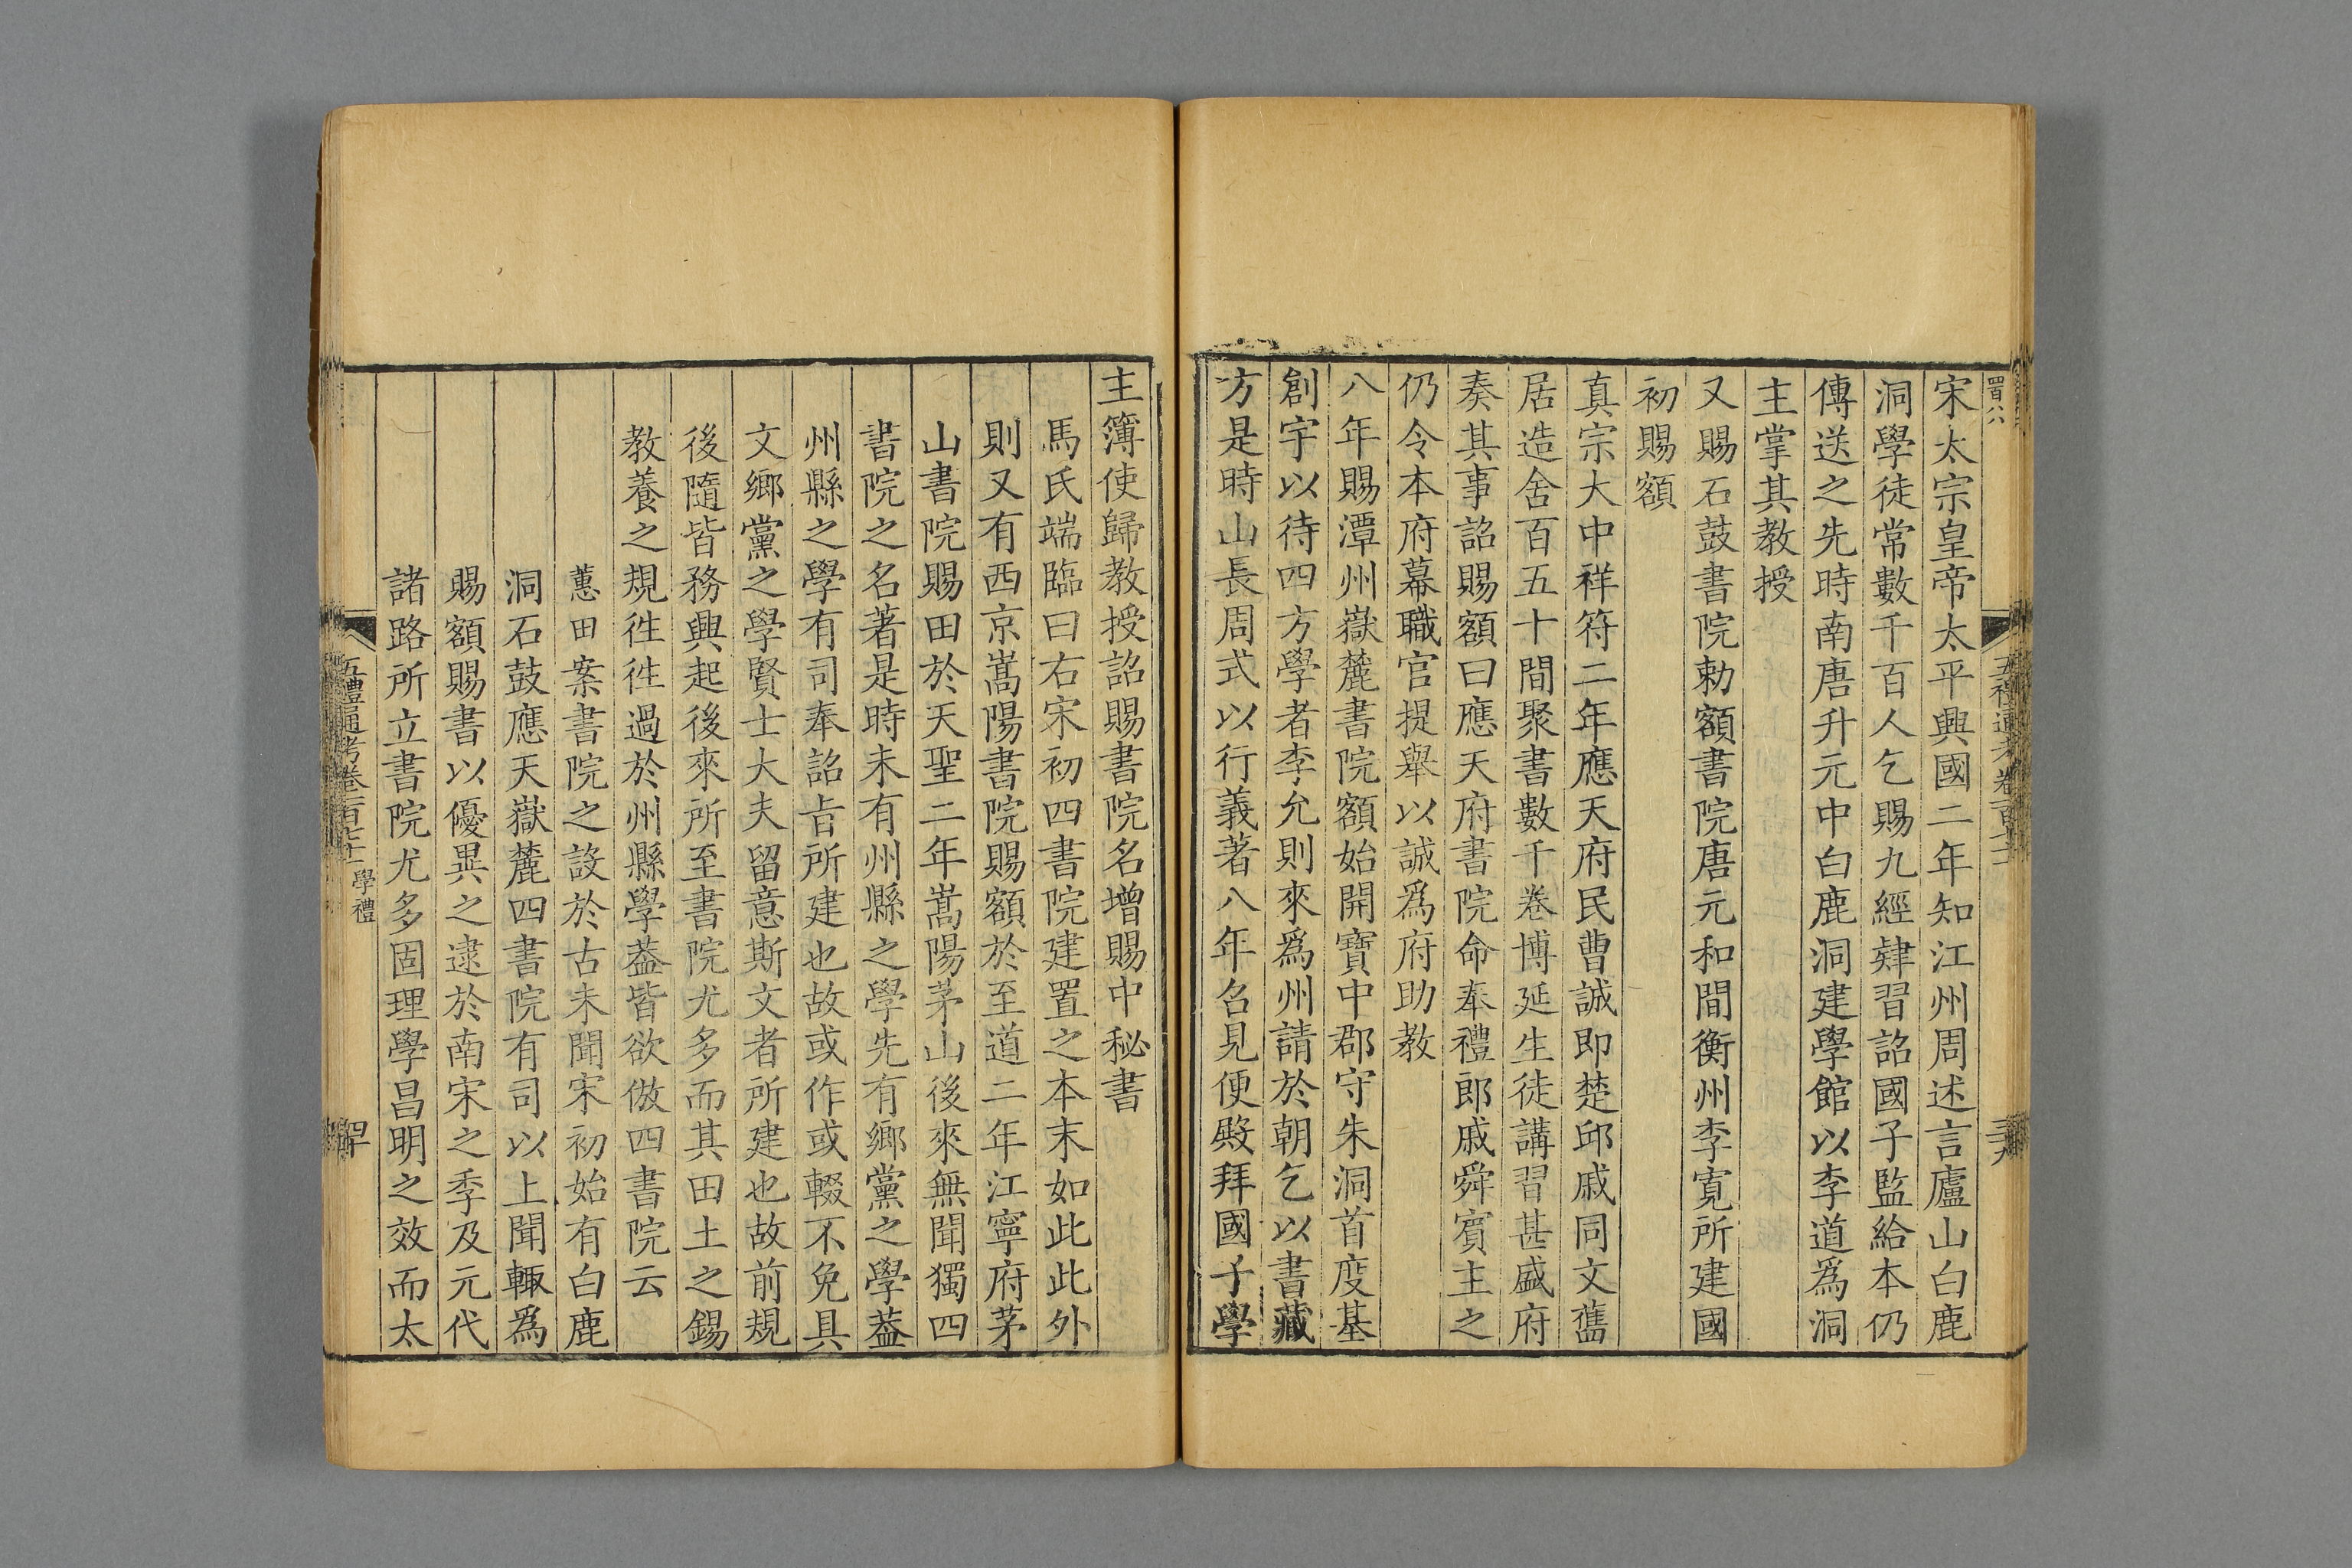 宋太宗皇帝太平興國二年知江州周述言廬山白鹿
洞學徒常數千百人乞賜九經肄習詔國子監給本仍
傳送之先時南唐升元中白鹿洞建學館以李道爲洞
主掌其教授
又賜石鼓書院勅額書院唐元和間衡州李寬所建國
初賜額
真宗大中祥符二年應天府民曹誠即楚邱戚同文舊
居造舍百五十間聚書數千卷博延生徒講習甚盛府
奏其事詔賜額曰應天府書院命奉禮郎戚舜賓主之
仍令本府幕職官提舉以誠爲府助教
八年賜潭州嶽麓書院額始開寶中郡守朱洞首度基
創宇以待四方學者李允則來爲州請於朝乞以書藏
方是時山長周式以行義著八年名見便殿拜國子學
主簿使歸教授詔賜書院名增賜中秘書
馬氏端臨曰右宋初四書院建置之本末如此此外
則又有西京嵩陽書院賜額於至道二年江寧府茅
山書院賜田於天聖二年嵩陽茅山後來無聞獨四
書院之名著是時未有州縣之學先有鄉黨之學葢
州縣之學有司奉詔旨所建也故或作或輟不免具
文鄉黨之學賢士大夫留意斯文者所建也故前規
後隨皆務興起後來所至書院尤多而其田土之錫
教養之規徃徃過於州縣學葢皆欲倣四書院云
蕙田案書院之設於古未聞宋初始有白鹿
洞石鼓應天嶽麓四書院有司以上聞輙爲
賜額賜書以優異之逮於南宋之季及元代
諸路所立書院尤多固理學昌明之效而太
五禮通考卷一百七十一 學禮